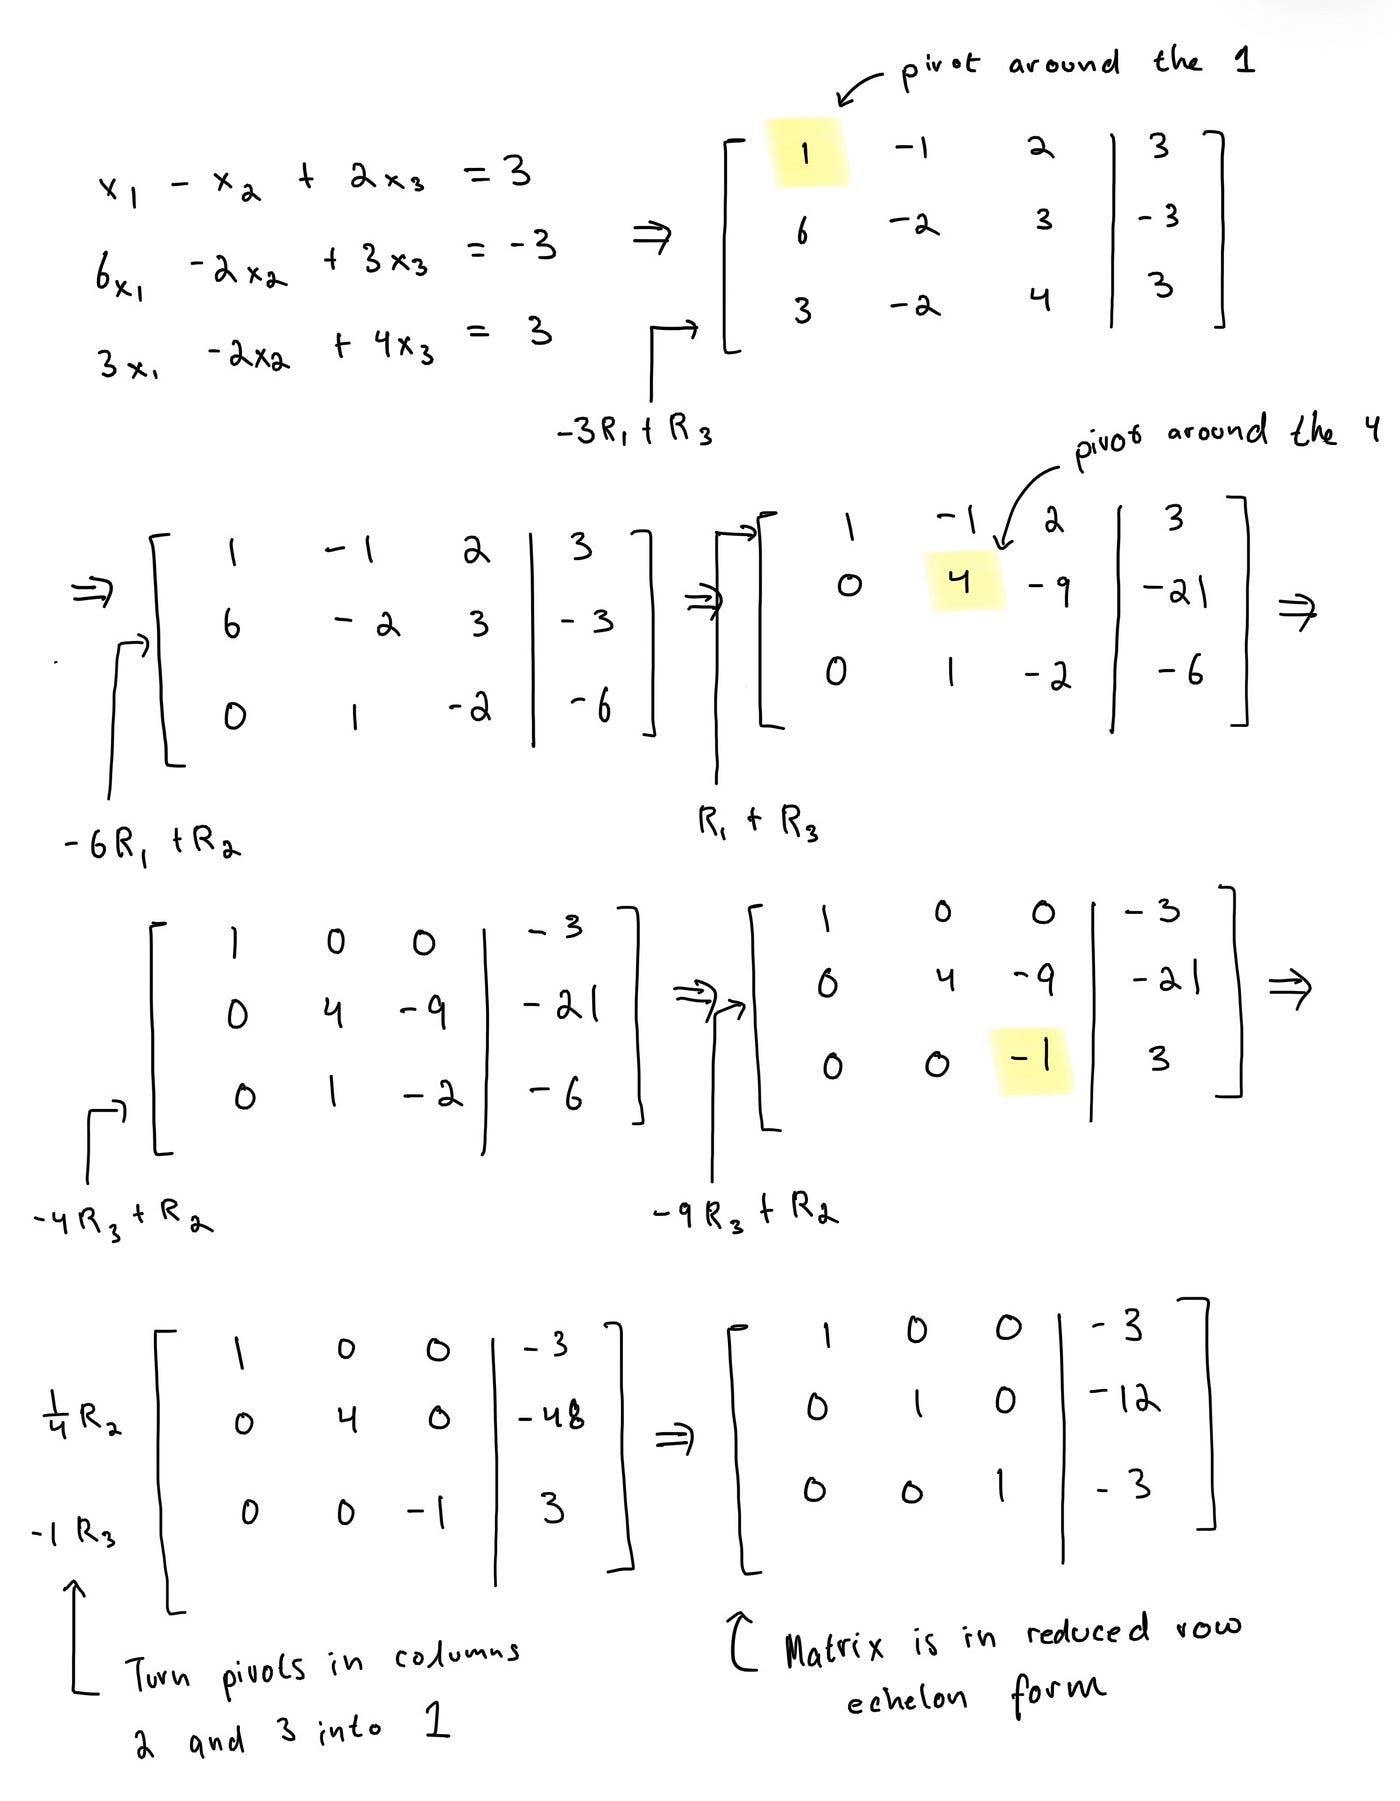 pivot around the 1
x₁ - x₂ + 2x₃ = 3
6x₁ - 2x₂ + 3x₃ = -3
3x₁ - 2x₂ + 4x₃ = 3
⇒
1 -1 2 | 3
6 -2 3 | -3
3 -2 4 | 3
-3R₁ + R₃
pivot around the 4
⇒
1 -1 2 | 3
6 -2 3 | -3
0 1 -2 | -6
-6R₁ + R₂
⇒
1 -1 2 | 3
0 4 -9 | -21
0 1 -2 | -6
⇒
R₁ + R₃
1 0 0 | -3
0 4 -9 | -21
0 1 -2 | -6
-4R₃ + R₂
⇒
1 0 0 | -3
0 4 -9 | -21
0 0 -1 | 3
⇒
-9R₃ + R₂
1 0 0 | -3
¼R₂ 0 4 0 | -48
-1R₃ 0 0 -1 | 3
⇒
1 0 0 | -3
0 1 0 | -12
0 0 1 | -3
Turn pivots in columns
2 and 3 into 1
Matrix is in reduced row
echelon form